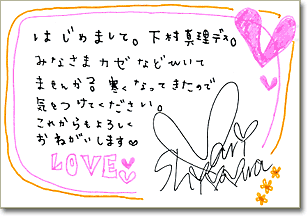 はじめまして。下村真理デス。
みなさまカゼなどひいて
ませんか？寒くなってきたので
気をつけてください。
これからもよろしく
おねがいします♡
LOVE♡
Mari
Shimomura